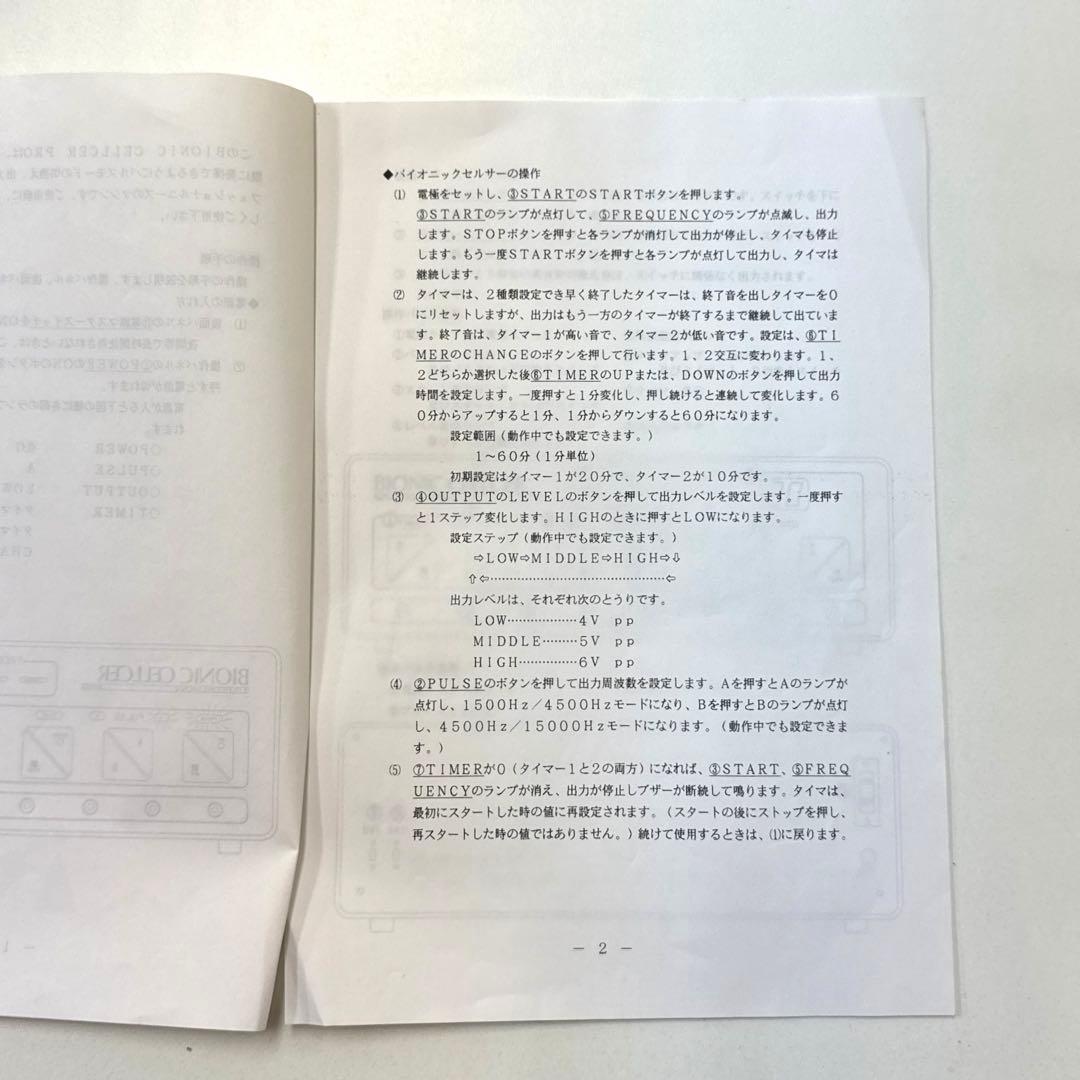 ◆バイオニックセルサーの操作
⑴ 電極をセットし、③STARTのSTARTボタンを押します。
③STARTのランプが点灯して、⑤FREQUENCYのランプが点滅し、出力
します。STOPボタンを押すと各ランプが消灯して出力が停止し、タイマも停止
します。もう一度STARTボタンを押すと各ランプが点灯して出力し、タイマは
継続します。
⑵ タイマーは、2種類設定でき早く終了したタイマーは、終了音を出しタイマーを0
にリセットしますが、出力はもう一方のタイマーが終了するまで継続して出ていま
す。終了音は、タイマー1が高い音で、タイマー2が低い音です。設定は、⑥TI
MERのCHANGEのボタンを押して行います。1、2交互に変わります。1、
2どちらか選択した後⑥TIMERのUPまたは、DOWNのボタンを押して出力
時間を設定します。一度押すと1分変化し、押し続けると連続して変化します。6
0分からアップすると1分、1分からダウンすると60分になります。
設定範囲(動作中でも設定できます。)
1〜60分(1分単位)
初期設定はタイマー1が20分で、タイマー2が10分です。
⑶ ④OUTPUTのLEVELのボタンを押して出力レベルを設定します。一度押す
と1ステップ変化します。HIGHのときに押すとLOWになります。
設定ステップ(動作中でも設定できます。)
⇨LOW⇨MIDDLE⇨HIGH⇨⇩
⇧⇦………………………………………⇦
出力レベルは、それぞれ次のとうりです。
LOW………………4V pp
MIDDLE………5V pp
HIGH……………6V pp
⑷ ②PULSEのボタンを押して出力周波数を設定します。Aを押すとAのランプが
点灯し、1500Hz/4500Hzモードになり、Bを押すとBのランプが点灯
し、4500Hz/15000Hzモードになります。(動作中でも設定できま
す。)
⑸ ⑦TIMERが0(タイマー1と2の両方)になれば、③START、⑤FREQ
UENCYのランプが消え、出力が停止しブザーが断続して鳴ります。タイマは、
最初にスタートした時の値に再設定されます。(スタートの後にストップを押し、
再スタートした時の値ではありません。)続けて使用するときは、⑴に戻ります。
— 2 —